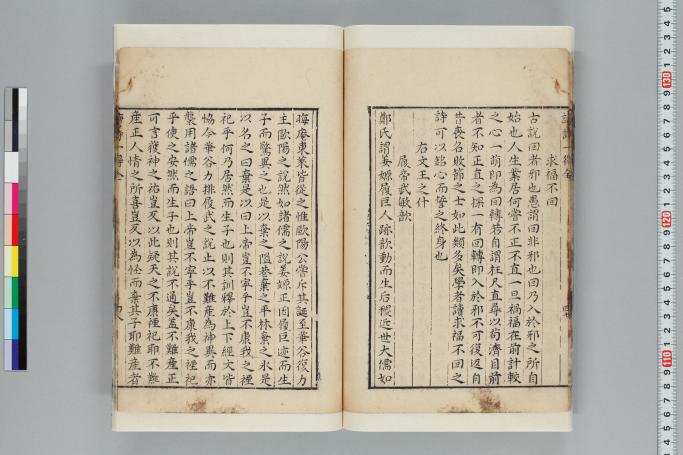 求福不回
古說回者邪也愚謂回非邪也回乃入於邪之所自
始也人生業居何嘗不正不直一旦禍福在前計較
之心一萌即為回轉若自謂枉尺直尋以苟濟目前
者不知正直之操一有回轉即入於邪不可復返自
昔喪名敗節之士如此類多矣學者讀求福不回之
詩可以銘心而誓之終身也
右文王之什
履帝武敏歆
鄭氏謂姜嫄履巨人跡歆動而生后稷近世大儒如
晦庵東萊皆從之惟歐陽公嘗斥其誕至華谷復力
主歐陽之說然如諸儒之說姜嫄正因履巨迹而生
子而驚異之也是以棄之隘巷棄之平林棄之氷是
以名之曰棄是以曰上帝豈不寧乎豈不康我之禋
祀乎何乃居然而生子也則其訓釋於上下經文皆
協今華谷力排履武之說止以不難產為神異而亦
襲用諸儒之語曰上帝豈不寧乎豈不康我之禋祀
乎使之安然而生子也則其說不通矣蓋不難產正
可言獲神之祐豈反以此疑天之不康禋祀耶不難
產正人情之所喜豈反以為怪而棄其子耶難產者